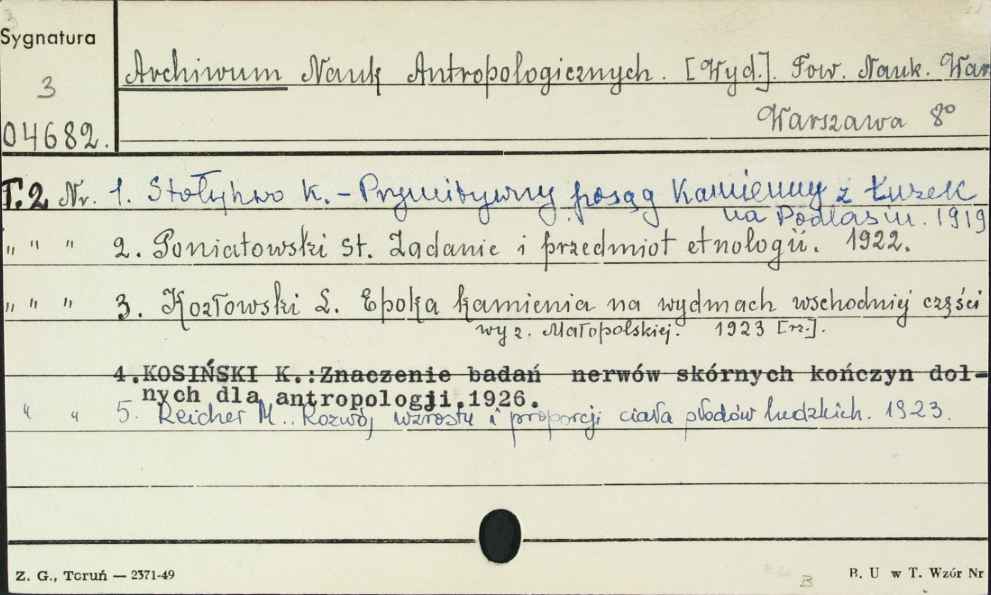 Sygnatura
3
04682.
Archiwum Nauk Antropologicznych. [Wyd.]. Tow. Nauk. War
Warszawa 8º
T.2 Nr. 1. Stołyhwo K. - Prymitywny posąg kamienny z Łuzek
na Podlasiu. 1919
„ " " 2. Poniatowski St. Zadanie i przedmiot etnologii. 1922.
„ " " 3. Kozłowski L. Epoka kamienia na wydmach wschodniej części
wyż. Małopolskiej. 1923 [rz.].
4.KOSIŃSKI K.:Znaczenie badań nerwów skórnych kończyn dol-
nych dla antropologji.1926.
" " 5. Reicher M.. Rozwój wzrostu i proporcji ciała płodów ludzkich. 1923.
Z. G., Toruń — 2371-49
B. U w T. Wzór Nr
B